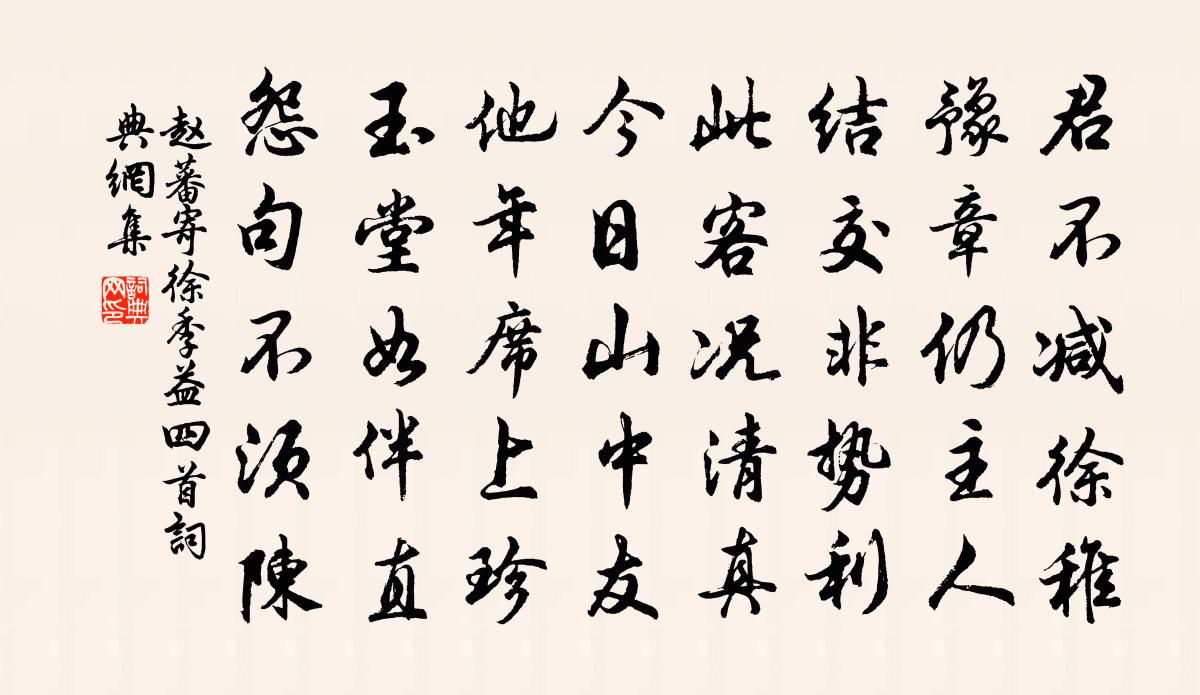 君不减徐稚
豫章仍主人
结交非势利
此客况清真
今日山中友
他年席上珍
玉堂如伴直
怨句不须陳
赵蕃寄徐季益四首詞
典網集
詞典
网印